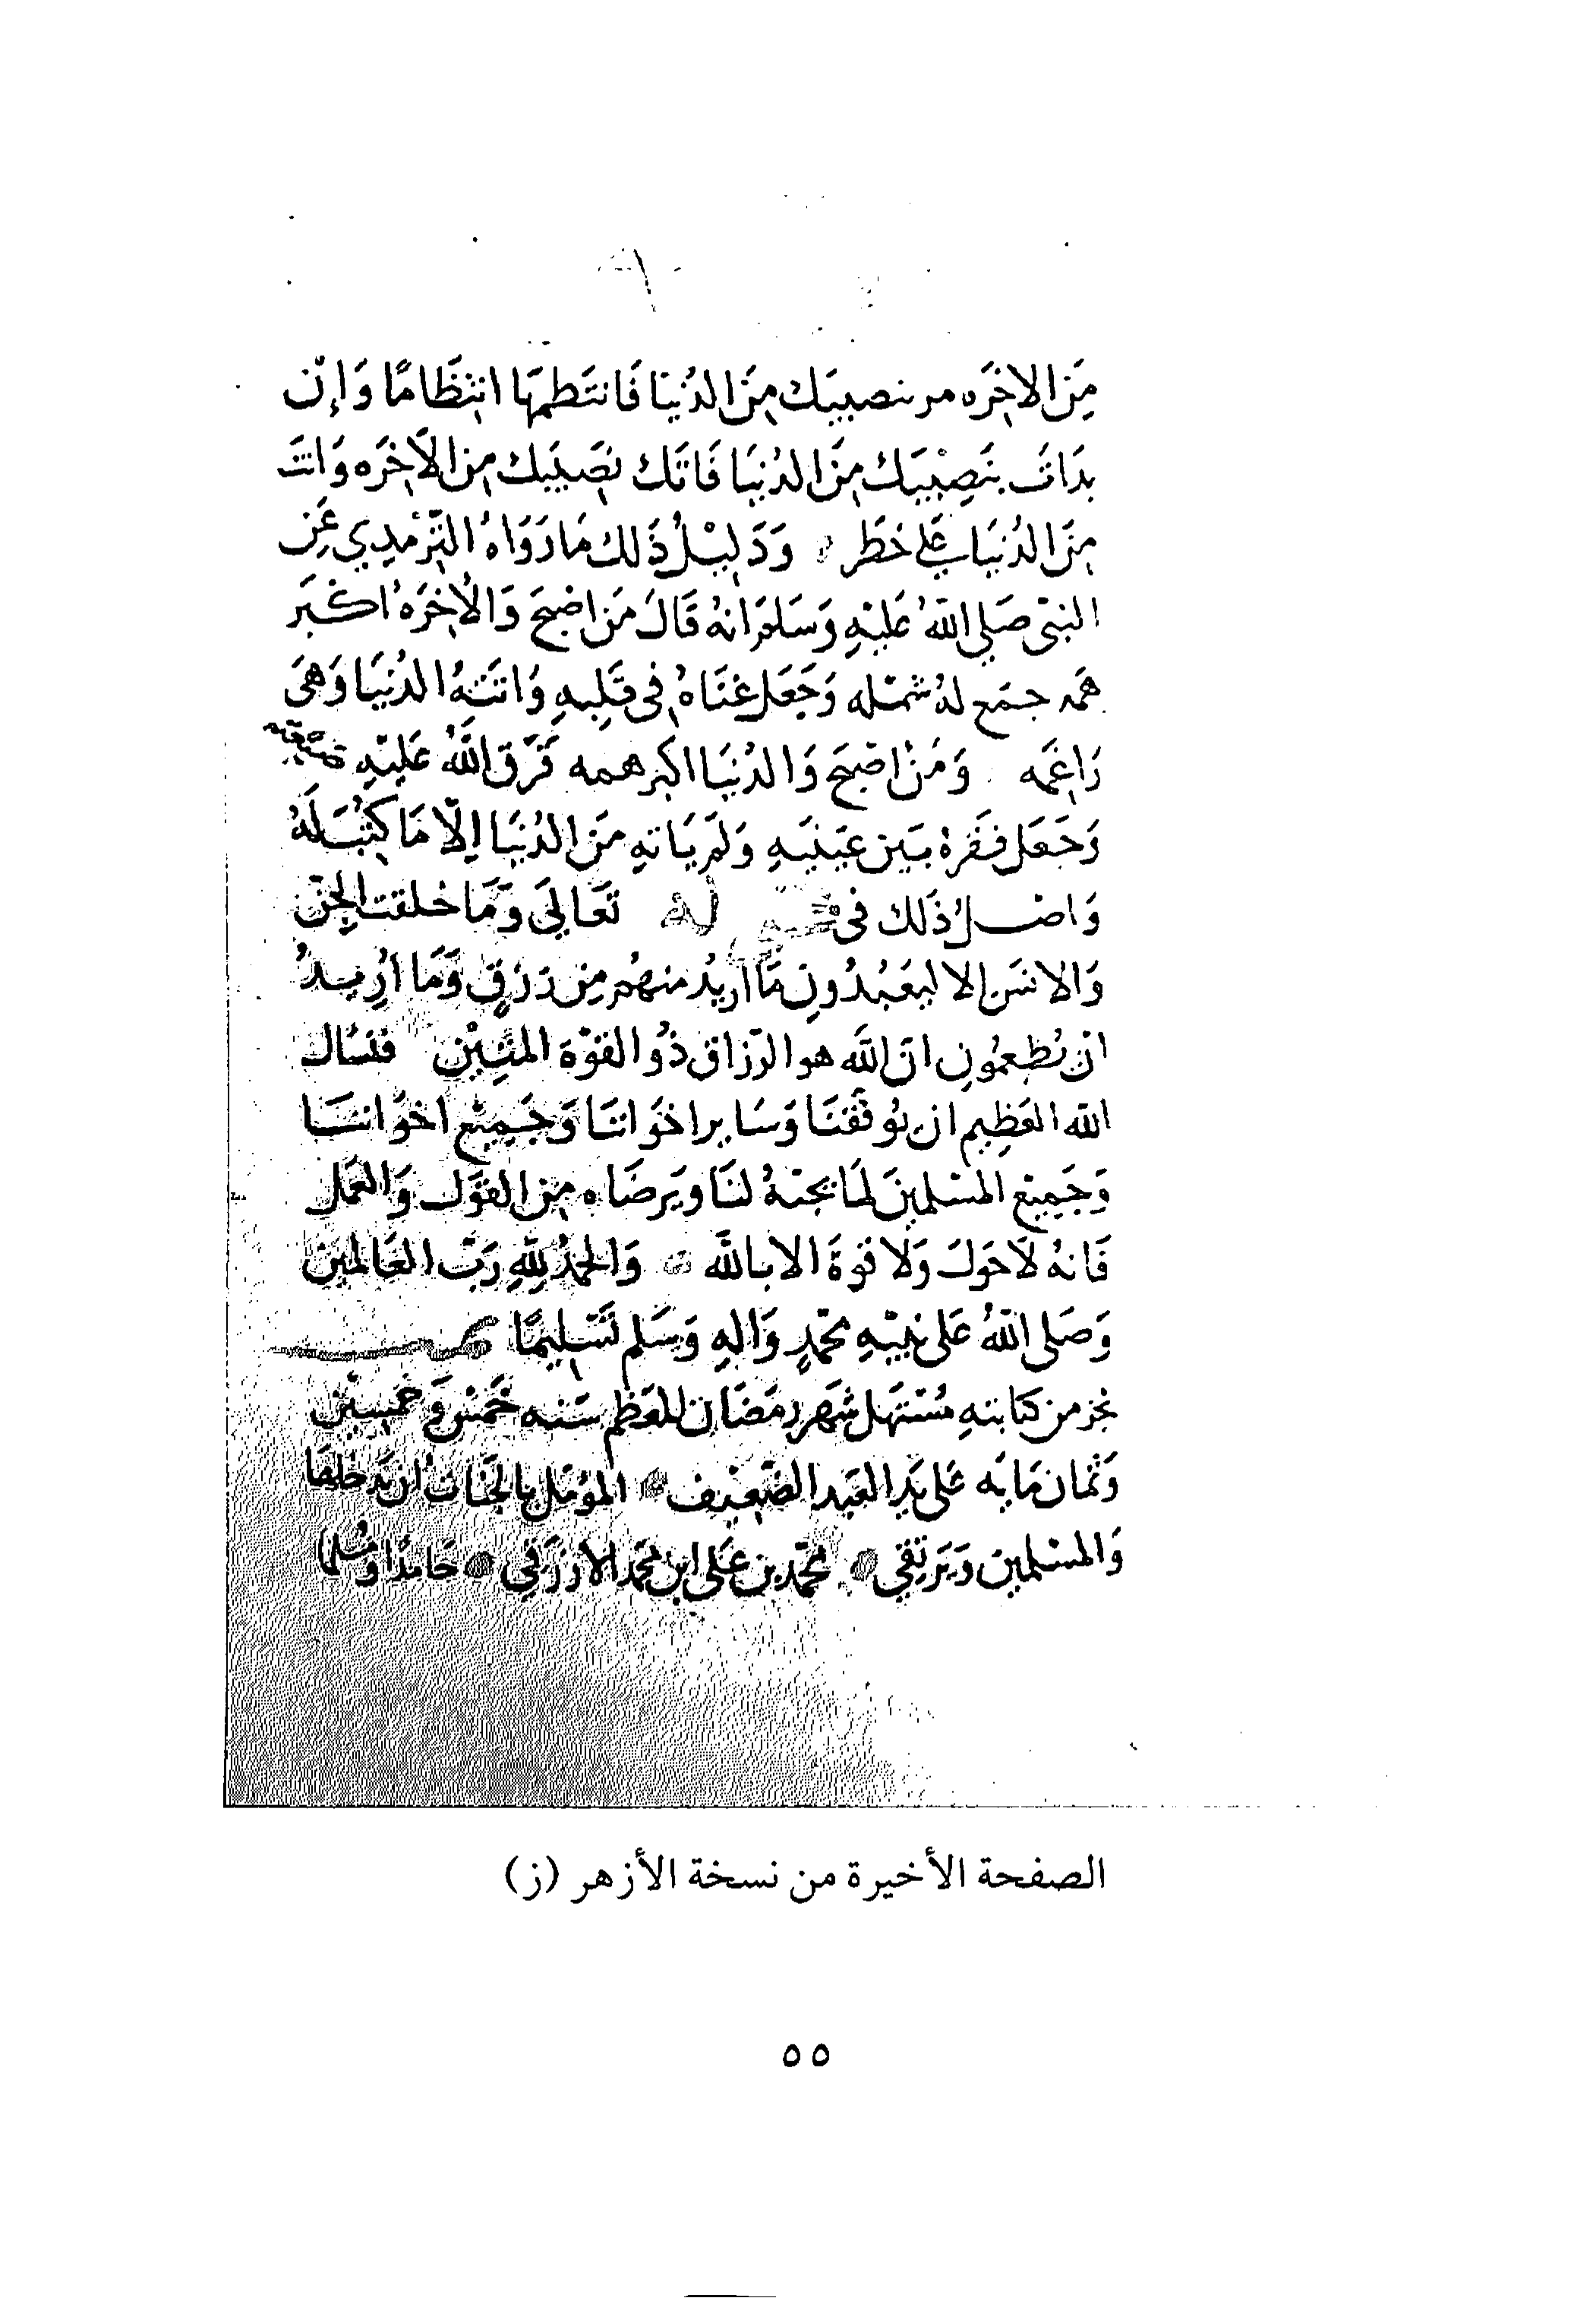 مِنَ الاخِرَه مر بنصيبك مِنَ الدُنيَا فَانتَطمَهَا انتِظَامًا وَإِن
بدَات بنَصِيْبِك مِنَ الدُنيَا فَاتَك نصَيبك مِن الآخِرَه وَانتَ
مِنَ الدُنيَا عَلي خطَر وَدَلِيْلُ ذَلك مَا رَوَاهُ التِّرْمِدِي عَنِ
النبيّ صَلي اللهُ عَليْهِ وَسَلم انهُ قَالَ مَن اصْبحَ وَالاخِرَهُ اكبَر
همه جمَع لهُ شمْله وَجَعَل غنَاهُ فِي قَلبِهِ وَاتَتهُ الدُنيَا وَهيَ
رَاغمَه وَمَنْ اصْبَحَ وَالدُنيَا اكبر همه فَرَّق اللَّهُ عَليْهِ ضيعته
وَجَعَل فقَرهُ بَين عيَنيَهِ وَلمَ يَاتهِ مَن الدُنيَا إلّا مَا كتُبَ لَهُ
وَاصْلُ ذَلك فى تعَالَى وَمَا خلقت الجِنّ
وَالانسَ إلا ليعَبُدُونِ مَا اريُد منهُم مِن رزقٍ وَمَا ارُيدُ
ان يُطعِمُونِ ان اللَّه هو الرّزاق ذُو القوّة المتِيْن فنسَال
الله العَظِيم ان يوُفّقنَا وَسَاير اخوَاننَا وَجَميِع اخوَاننَا
وَجَميِع المسْلمِينَ لمَا يحبّهُ لنَا ويَرضَاه مِن القَول وَالعَمَل
فَانهُ لاَ حَولَ وَلاَ قوة الا باللَّه وَالحَمدُ لِلّهِ رَبّ العَالمِينَ
وَصَلى اللهُ عَلى نبيّهِ محمّدٍ وَالهِ وَسَلم تسْلِيمًا
نجز من كتابتهِ مُسْتهَل شَهر رمَضَان المعَظم سَنه خَمسْ وَ خمسِين
وَثمان مَايه عَلى يَد العَبد الضّعِيف المؤمّل بالجَنان ان يَدخلهَا
وَالمسْلمِينَ وَيَرتقي محمّد بن عَلى ابن محمّد الازرَقي حَامدًا وَمُسلما
الصفحة الأخيرة من نسخة الأزهر (ز)
٥٥